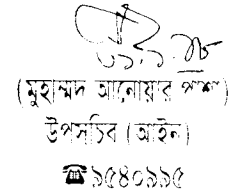 ৩১.১.১৮
(মুহাম্মদ আনোয়ার পাশা)
উপসচিব (আইন)
☎৯৫৪০৯৯৫